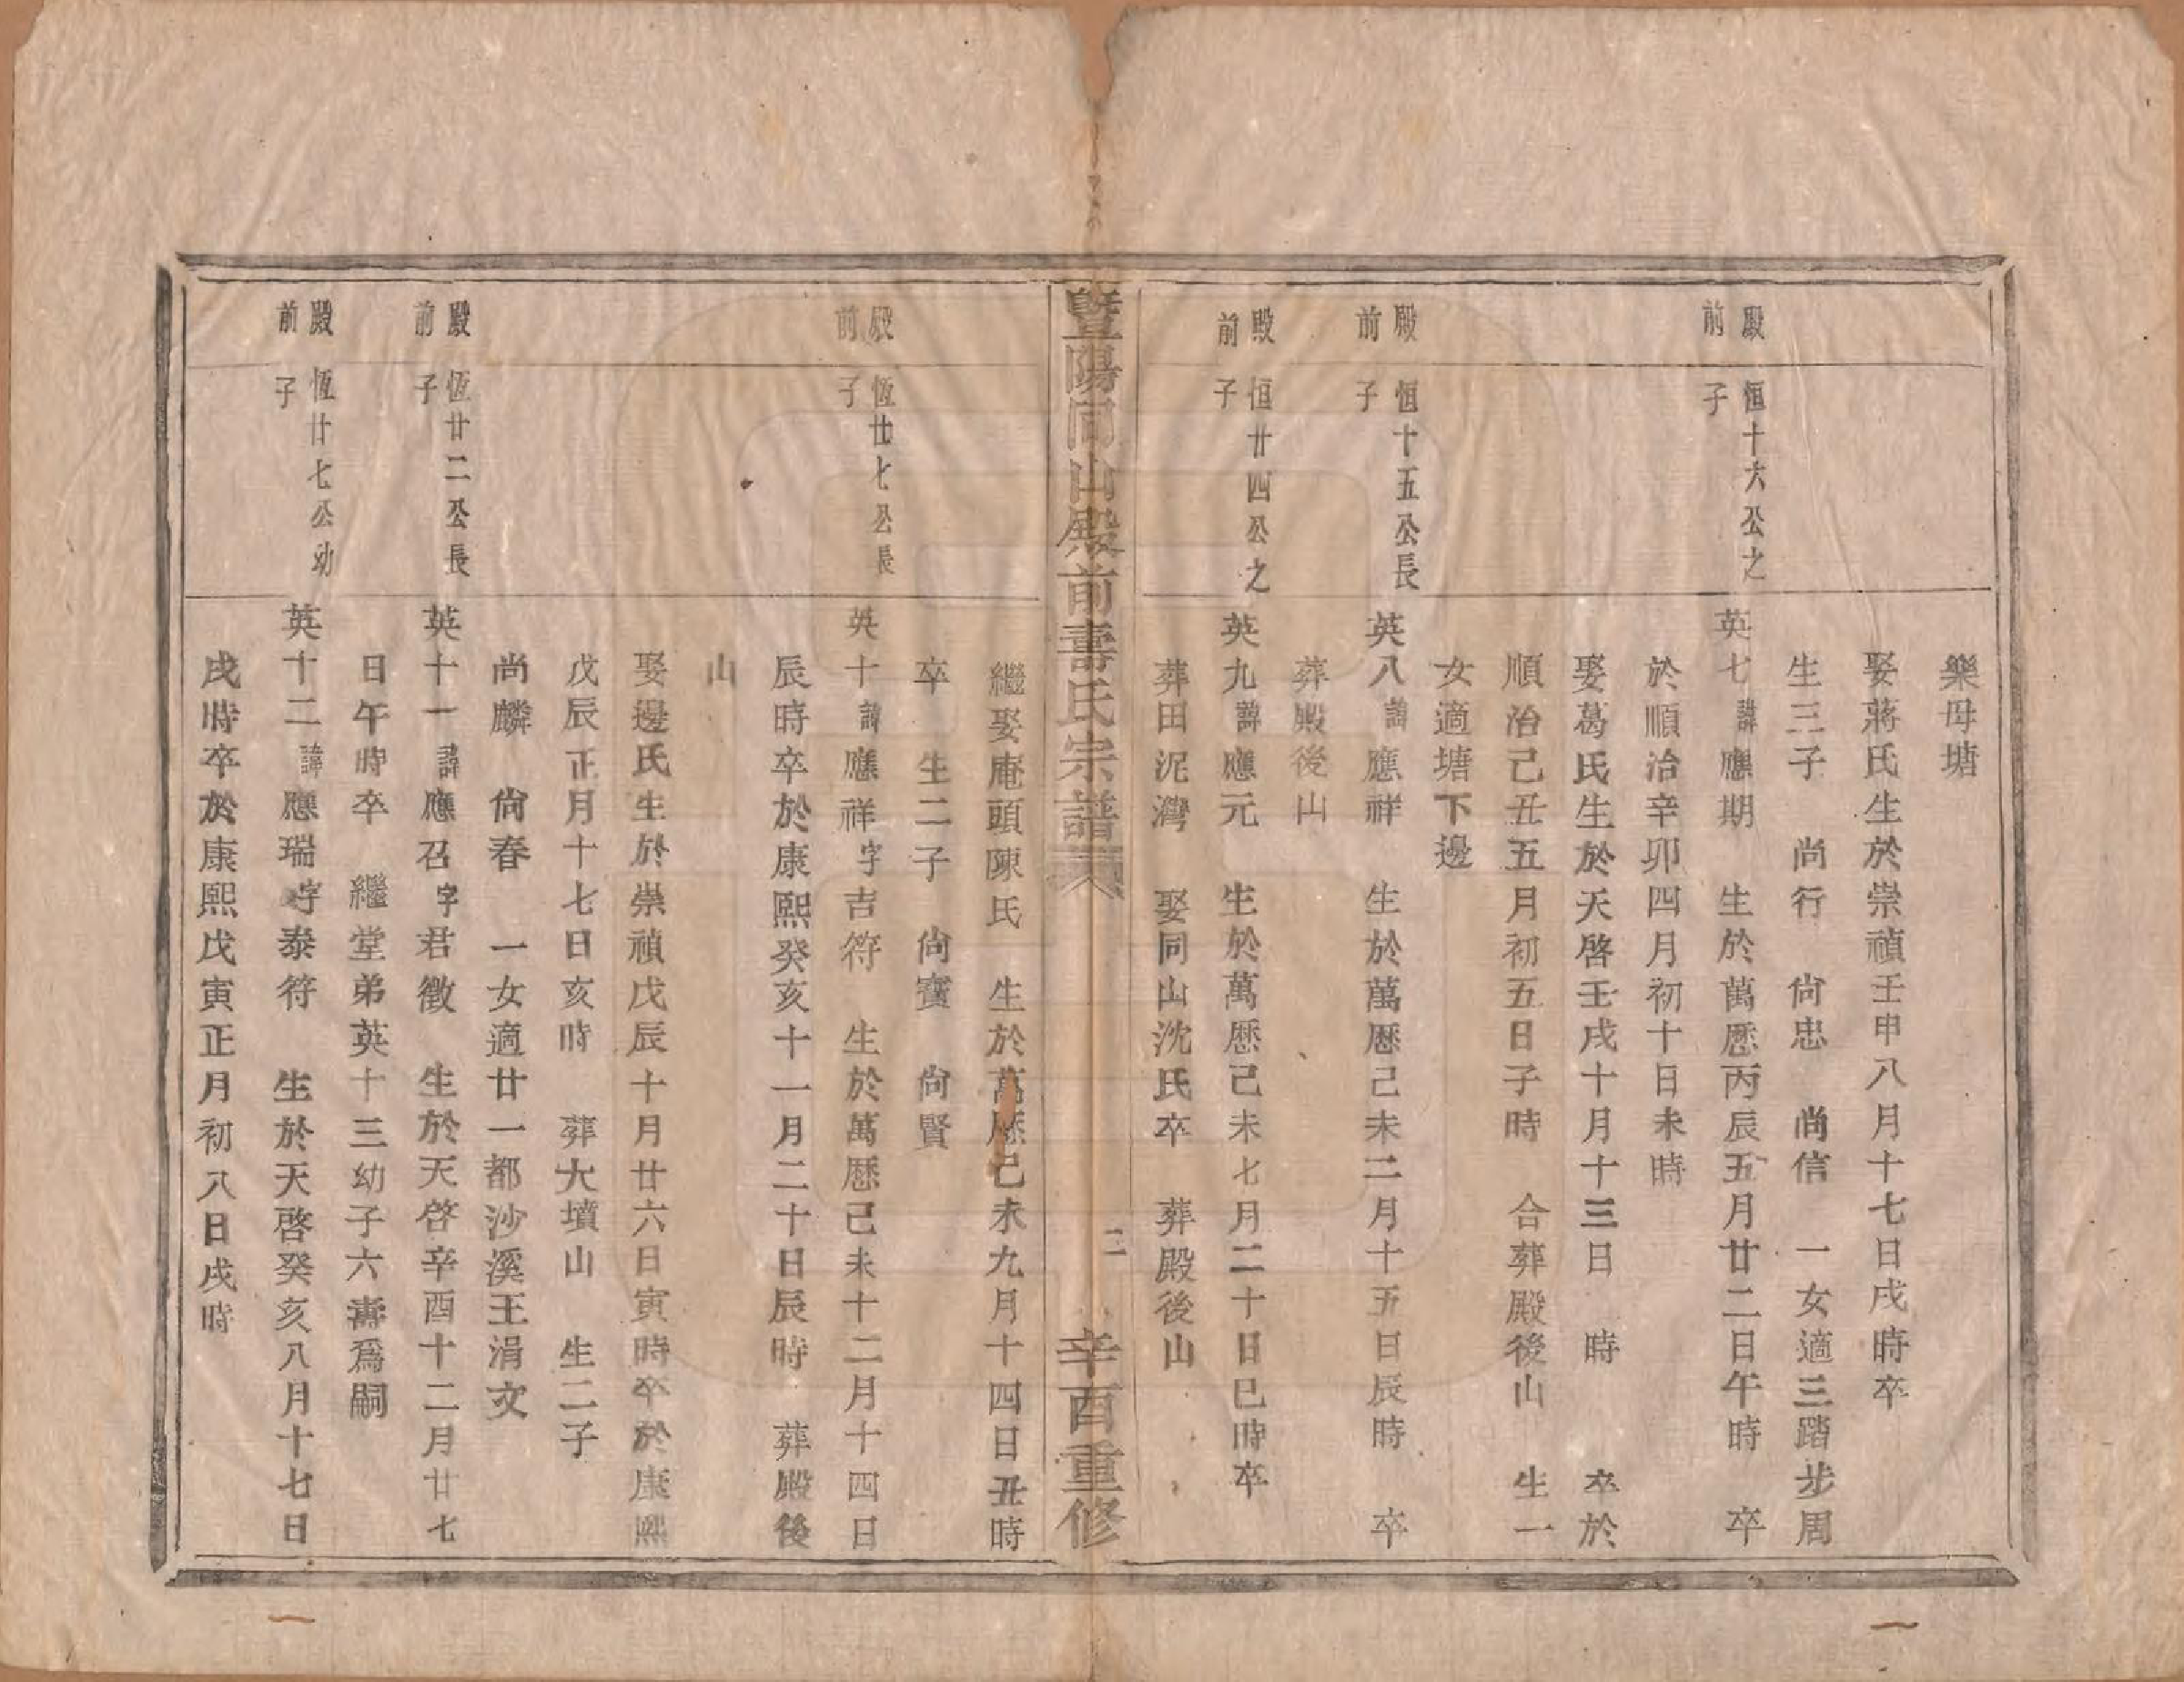 樂母塘
娶蔣氏生於崇禎壬申八月十七日戌時卒
生三子　尚行　尚忠　尚信　一女適三踏步周
殿前
恒十六公之子
英七諱應期　生於萬厯丙辰五月廿二日午時　卒
於順治辛卯四月初十日未時
娶葛氏生於天啓壬戌十月十三日　時　卒於
順治己丑五月初五日子時　合葬殿後山　生一
女適塘下邊
殿前
恒十五公長子
英八諱應祥　生於萬厯己未二月十五日辰時　卒
葬殿後山
殿前
恒廿四公之子
英九諱應元　生於萬厯己未七月二十日巳時卒
葬田泥灣　娶同山沈氏卒　葬殿後山
暨陽同山殿前壽氏宗譜　二　辛酉重修
繼娶庵頭陳氏　生於萬厯己未九月十四日丑時
卒　生二子　尚寶　尚賢
殿前
恆廿七公長子
英十諱應祥字吉符　生於萬厯己未十二月十四日
辰時卒於康熙癸亥十一月二十日辰時　葬殿後
山
娶邊氏生於崇禎戊辰十月廿六日寅時卒於康熙
戊辰正月十七日亥時　葬大墳山　生二子
尚麟　尚春　一女適廿一都沙溪王涓文
殿前
恆廿二公長子
英十一諱應召字君徵　生於天啓辛酉十二月廿七
日午時卒　繼堂弟英十三幼子六壽爲嗣
殿前
恆廿七公幼子
英十二諱應瑞字泰符　生於天啓癸亥八月十七日
戌時卒於康熙戊寅正月初八日戌時